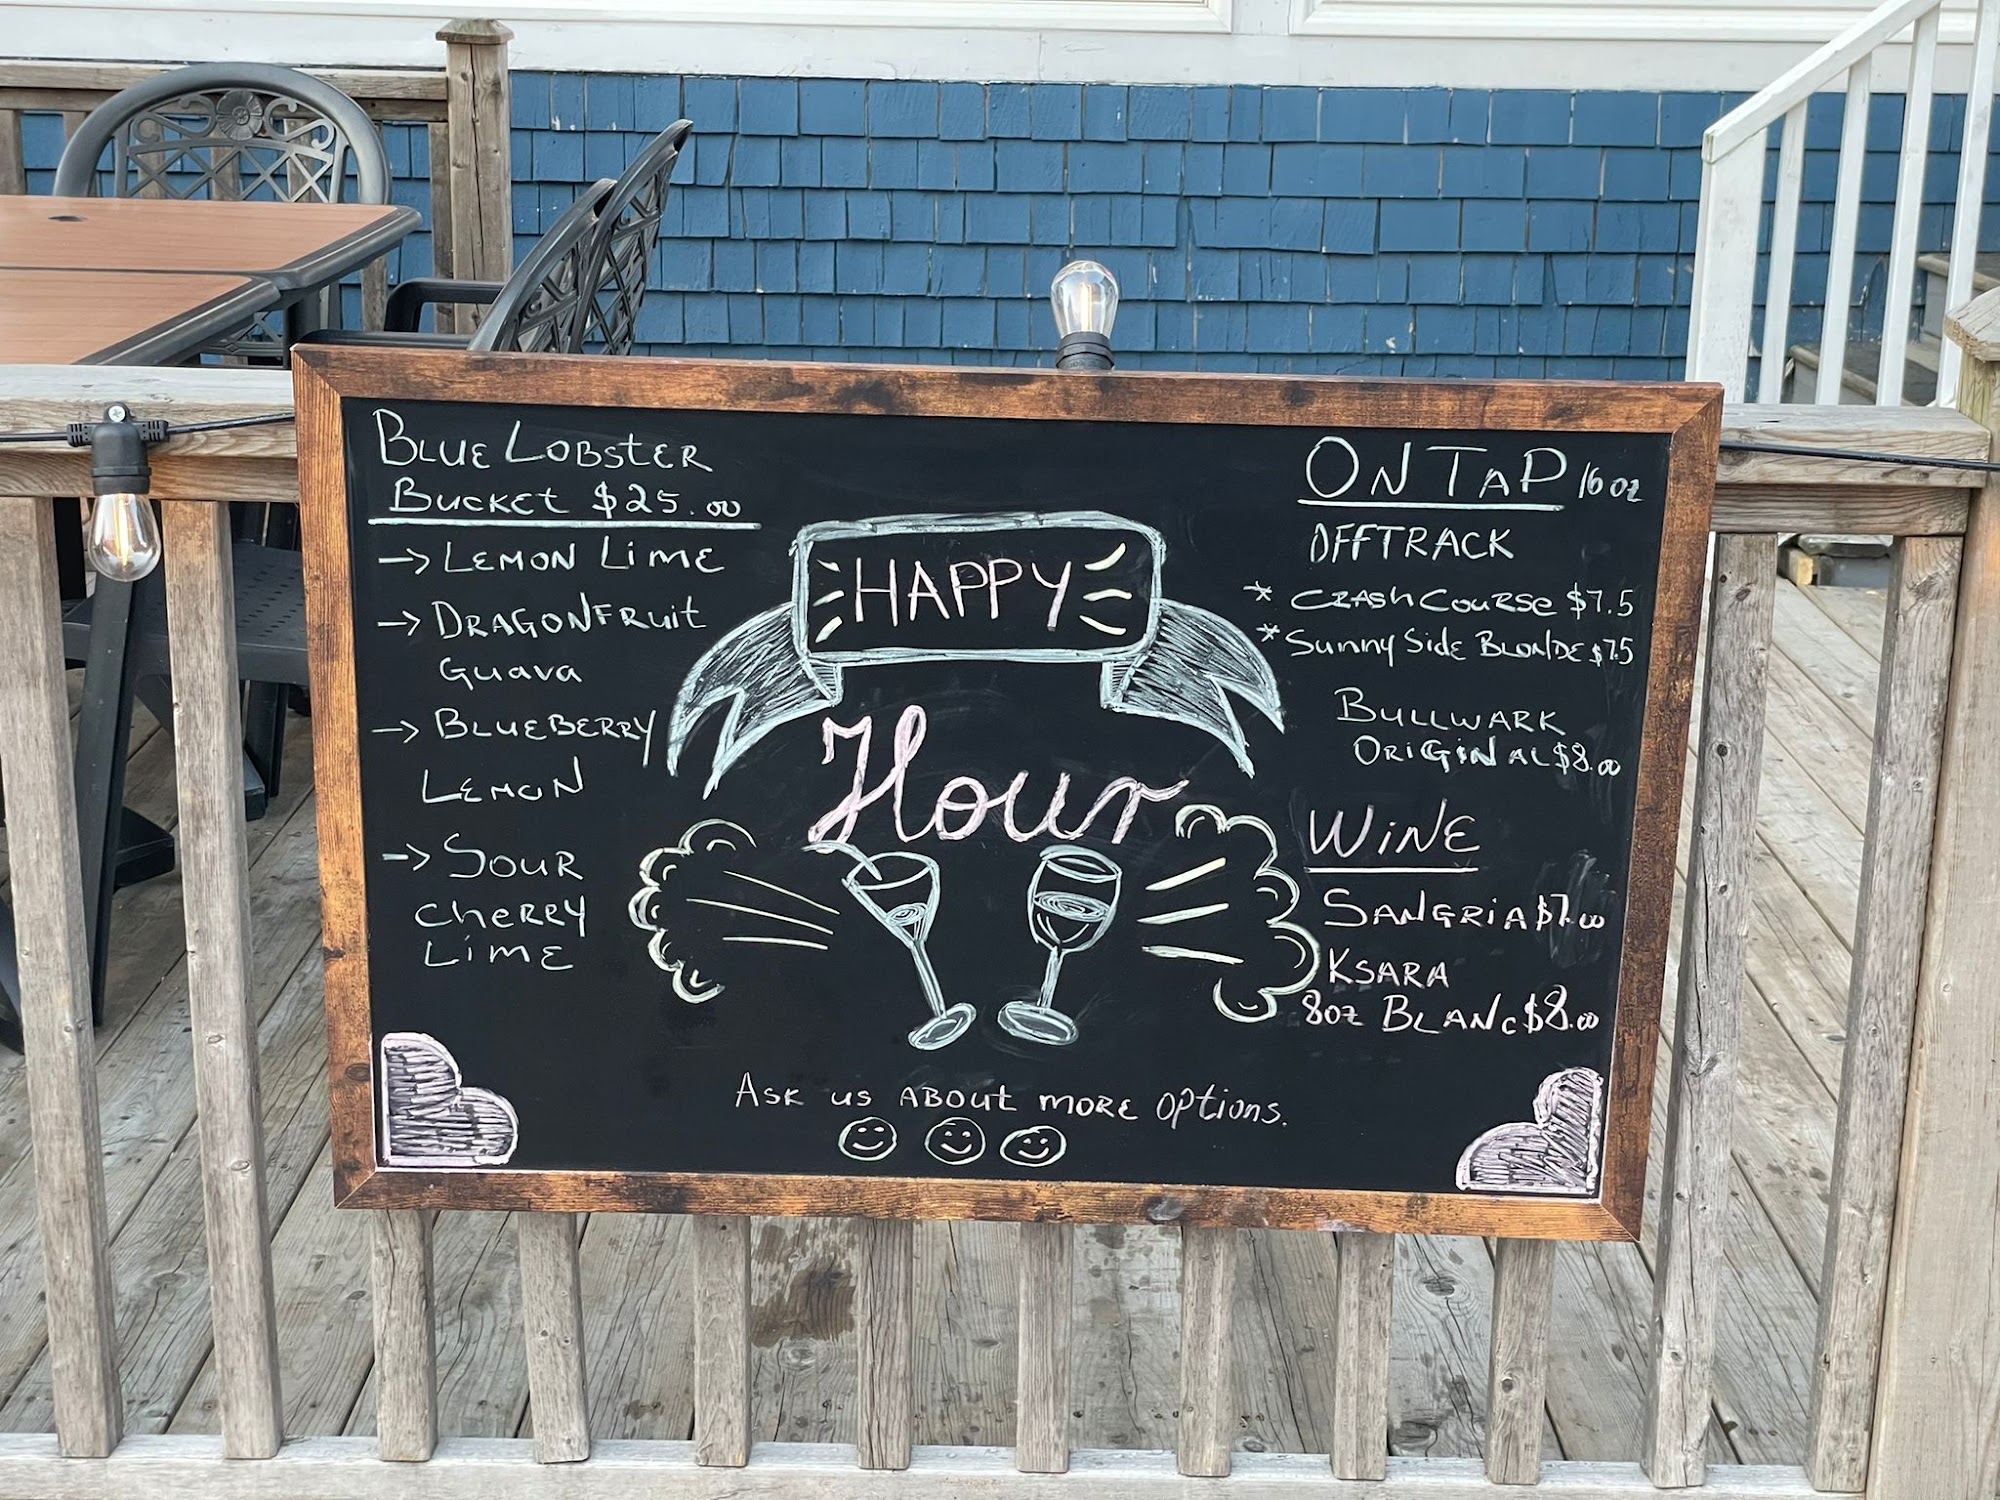 BLUE LOBSTER
BUCKET $25.00
→ LEMON LIME
→ DRAGONFRUIT
GUAVA
→ BLUEBERRY
LEMON
→ SOUR
CHERRY
LIME
HAPPY
Hour
ON TAP 16 oz
OFFTRACK
* CRASH COURSE $7.5
* Sunny Side BLONDE $7.5
BULLWARK
ORIGINAL $8.00
WINE
SANGRIA $7.00
KSARA
8oz BLANC $8.00
ASK US ABOUT MORE OPtions.